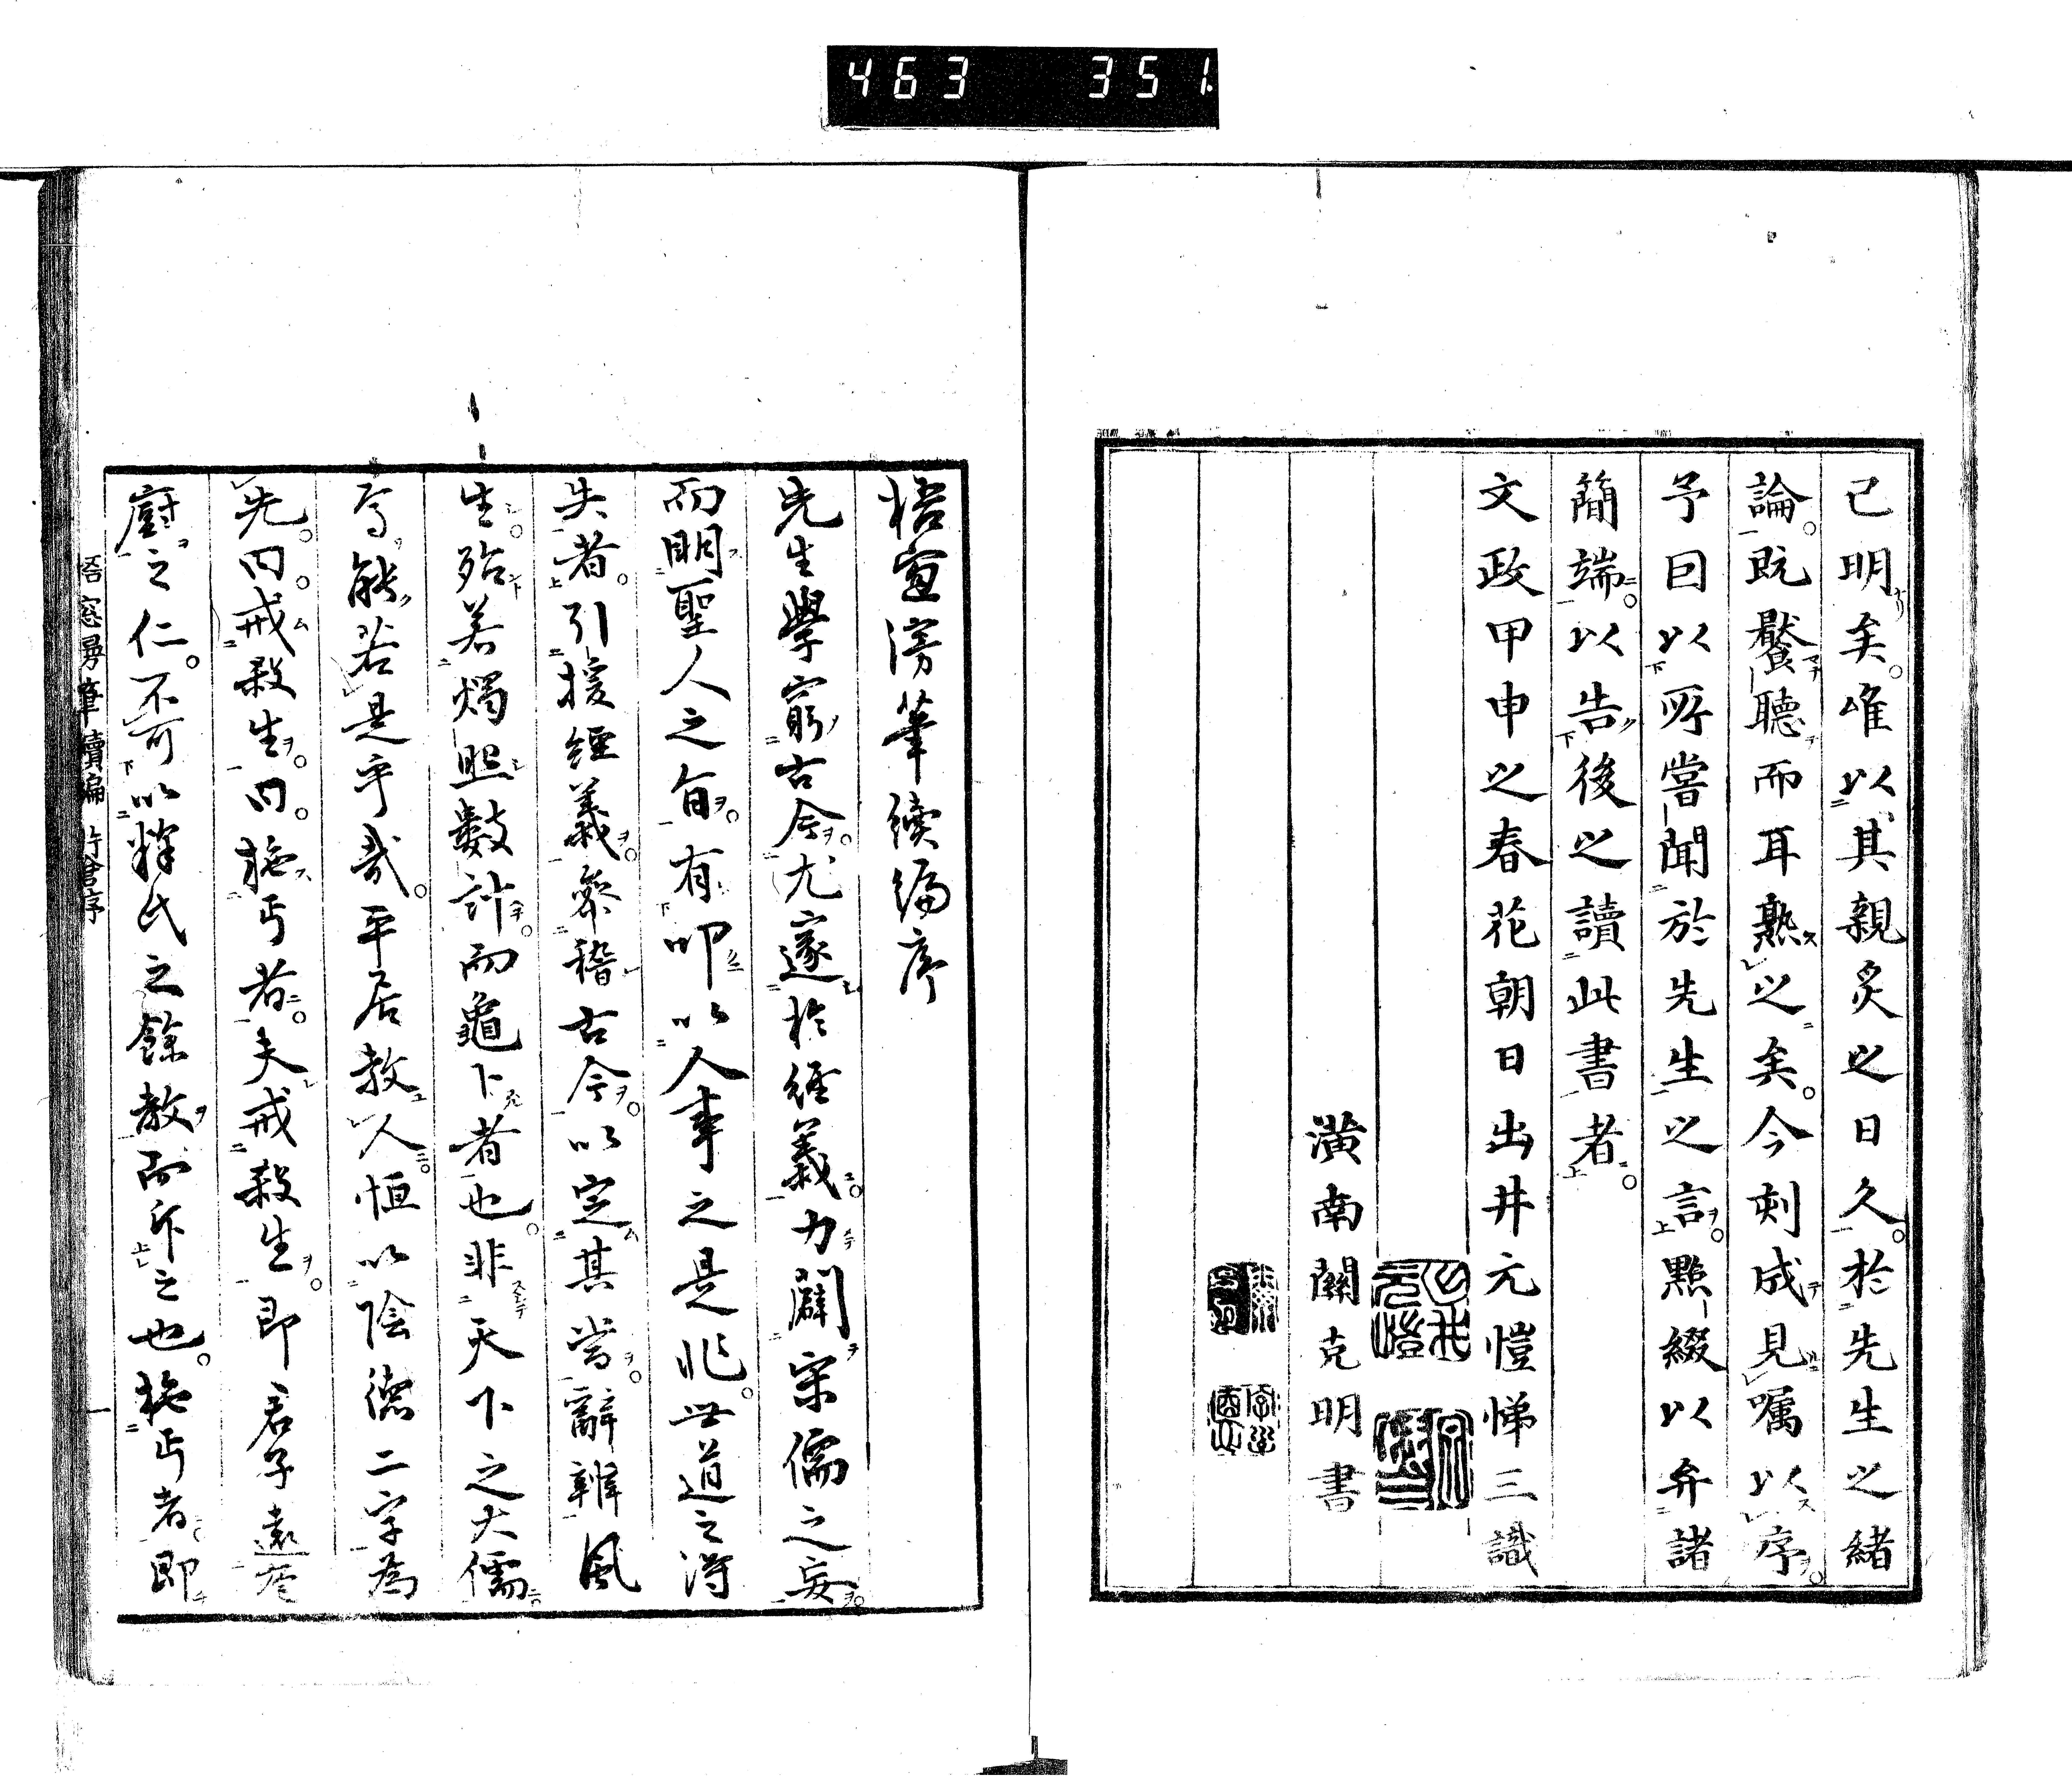 463 351
己明矣。唯以其親炙之日久。於先生之緒
論。既饜聽而耳熟之矣。今刻成見囑以序。
予曰以所嘗聞於先生之言。點綴以弁諸
簡端。以告後之讀此書者。
文政甲申之春花朝日出井元愷悌三識
潢南關克明書
梧窗漫筆續編序
先生學窮古今。尤邃於經義。力闢宋儒之妄。
而明聖人之旨。有叩以人事之是非。世道之得
失者。引援經義。參稽古今。以定其當。辭辨風
生。殆若燭照數計。而龜卜者也。非天下之大儒。
焉能若是乎哉。平居教人。恒以陰德二字為
先。曰。戒殺生。曰。施丐者。夫戒殺生。即君子遠庖
廚之仁。不可以釋氏之餘教而斥之也。施丐者。即
梧窓漫筆續編